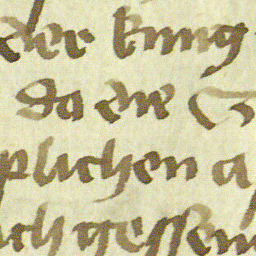 der kung
da die
plichen a
ich gessen